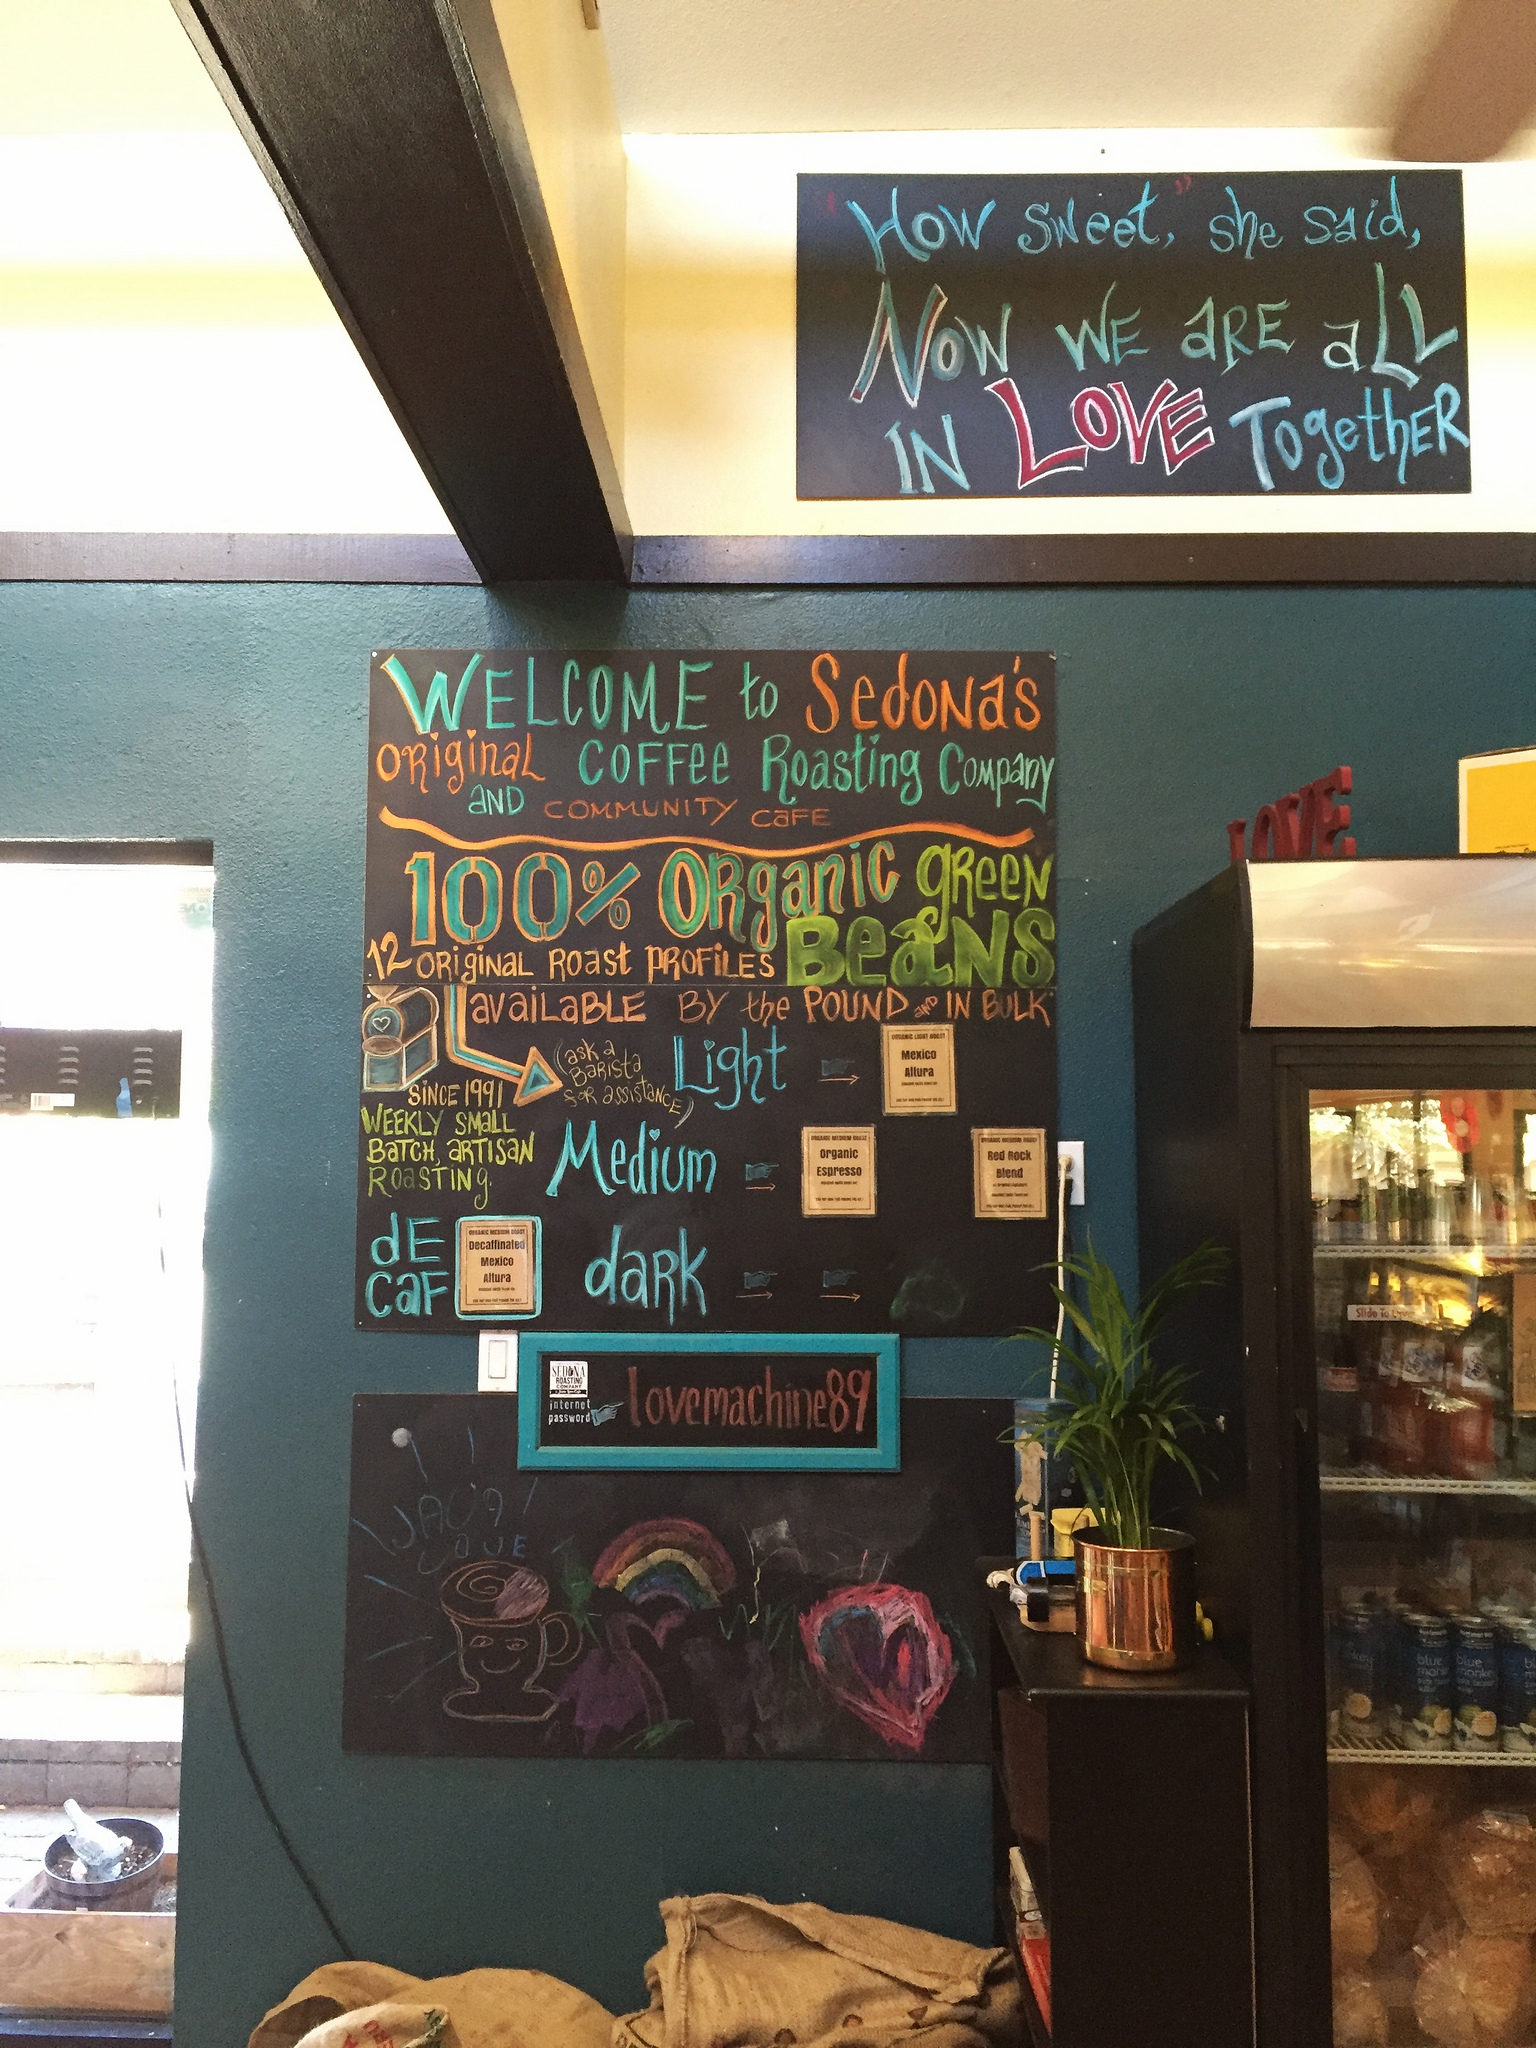 "How sweet," she said,
Now we are all
in Love Together
Welcome to Sedona's
Original Coffee Roasting Company
and Community Cafe
100% Organic green
Beans
12 original roast profiles
available by the pound and in bulk
(ask a
Barista
for assistance)
Light
ORGANIC LIGHT ROAST
Mexico
Altura
Since 1991
Weekly small
batch, artisan
roasting.
Medium
ORGANIC MEDIUM ROAST
Organic
Espresso
ORGANIC MEDIUM ROAST
Red Rock
Blend
decaf
ORGANIC MEDIUM ROAST
Decaffinated
Mexico
Altura
dark
SEDONA
ROASTING
COMPANY
internet
password
lovemachine89
LOVE
Slide To
blue
monkey
blue
monkey